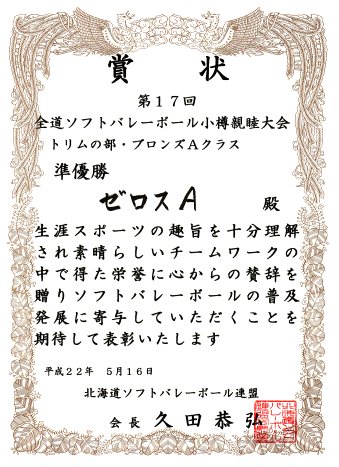 賞状
第１７回
全道ソフトバレーボール小樽親睦大会
トリムの部・ブロンズＡクラス
準優勝
ゼロスＡ 殿
生涯スポーツの趣旨を十分理解
され素晴らしいチームワークの
中で得た栄誉に心からの賛辞を
贈りソフトバレーボールの普及
発展に寄与していただくことを
期待して表彰いたします
平成２２年 ５月１６日
北海道ソフトバレーボール連盟
会長 久田恭弘